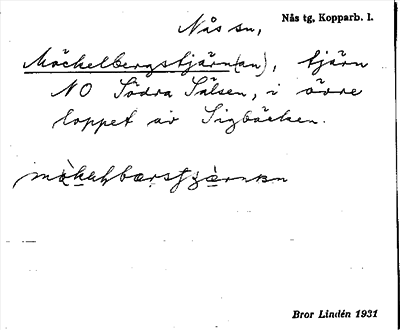 Nås sn,
Nås tg, Kopparb. l.
Möckelbergstjärn(en), tjärn
NO Södra Sälsen, i övre
loppet av Sigbäcken.
Bror Lindén 1931